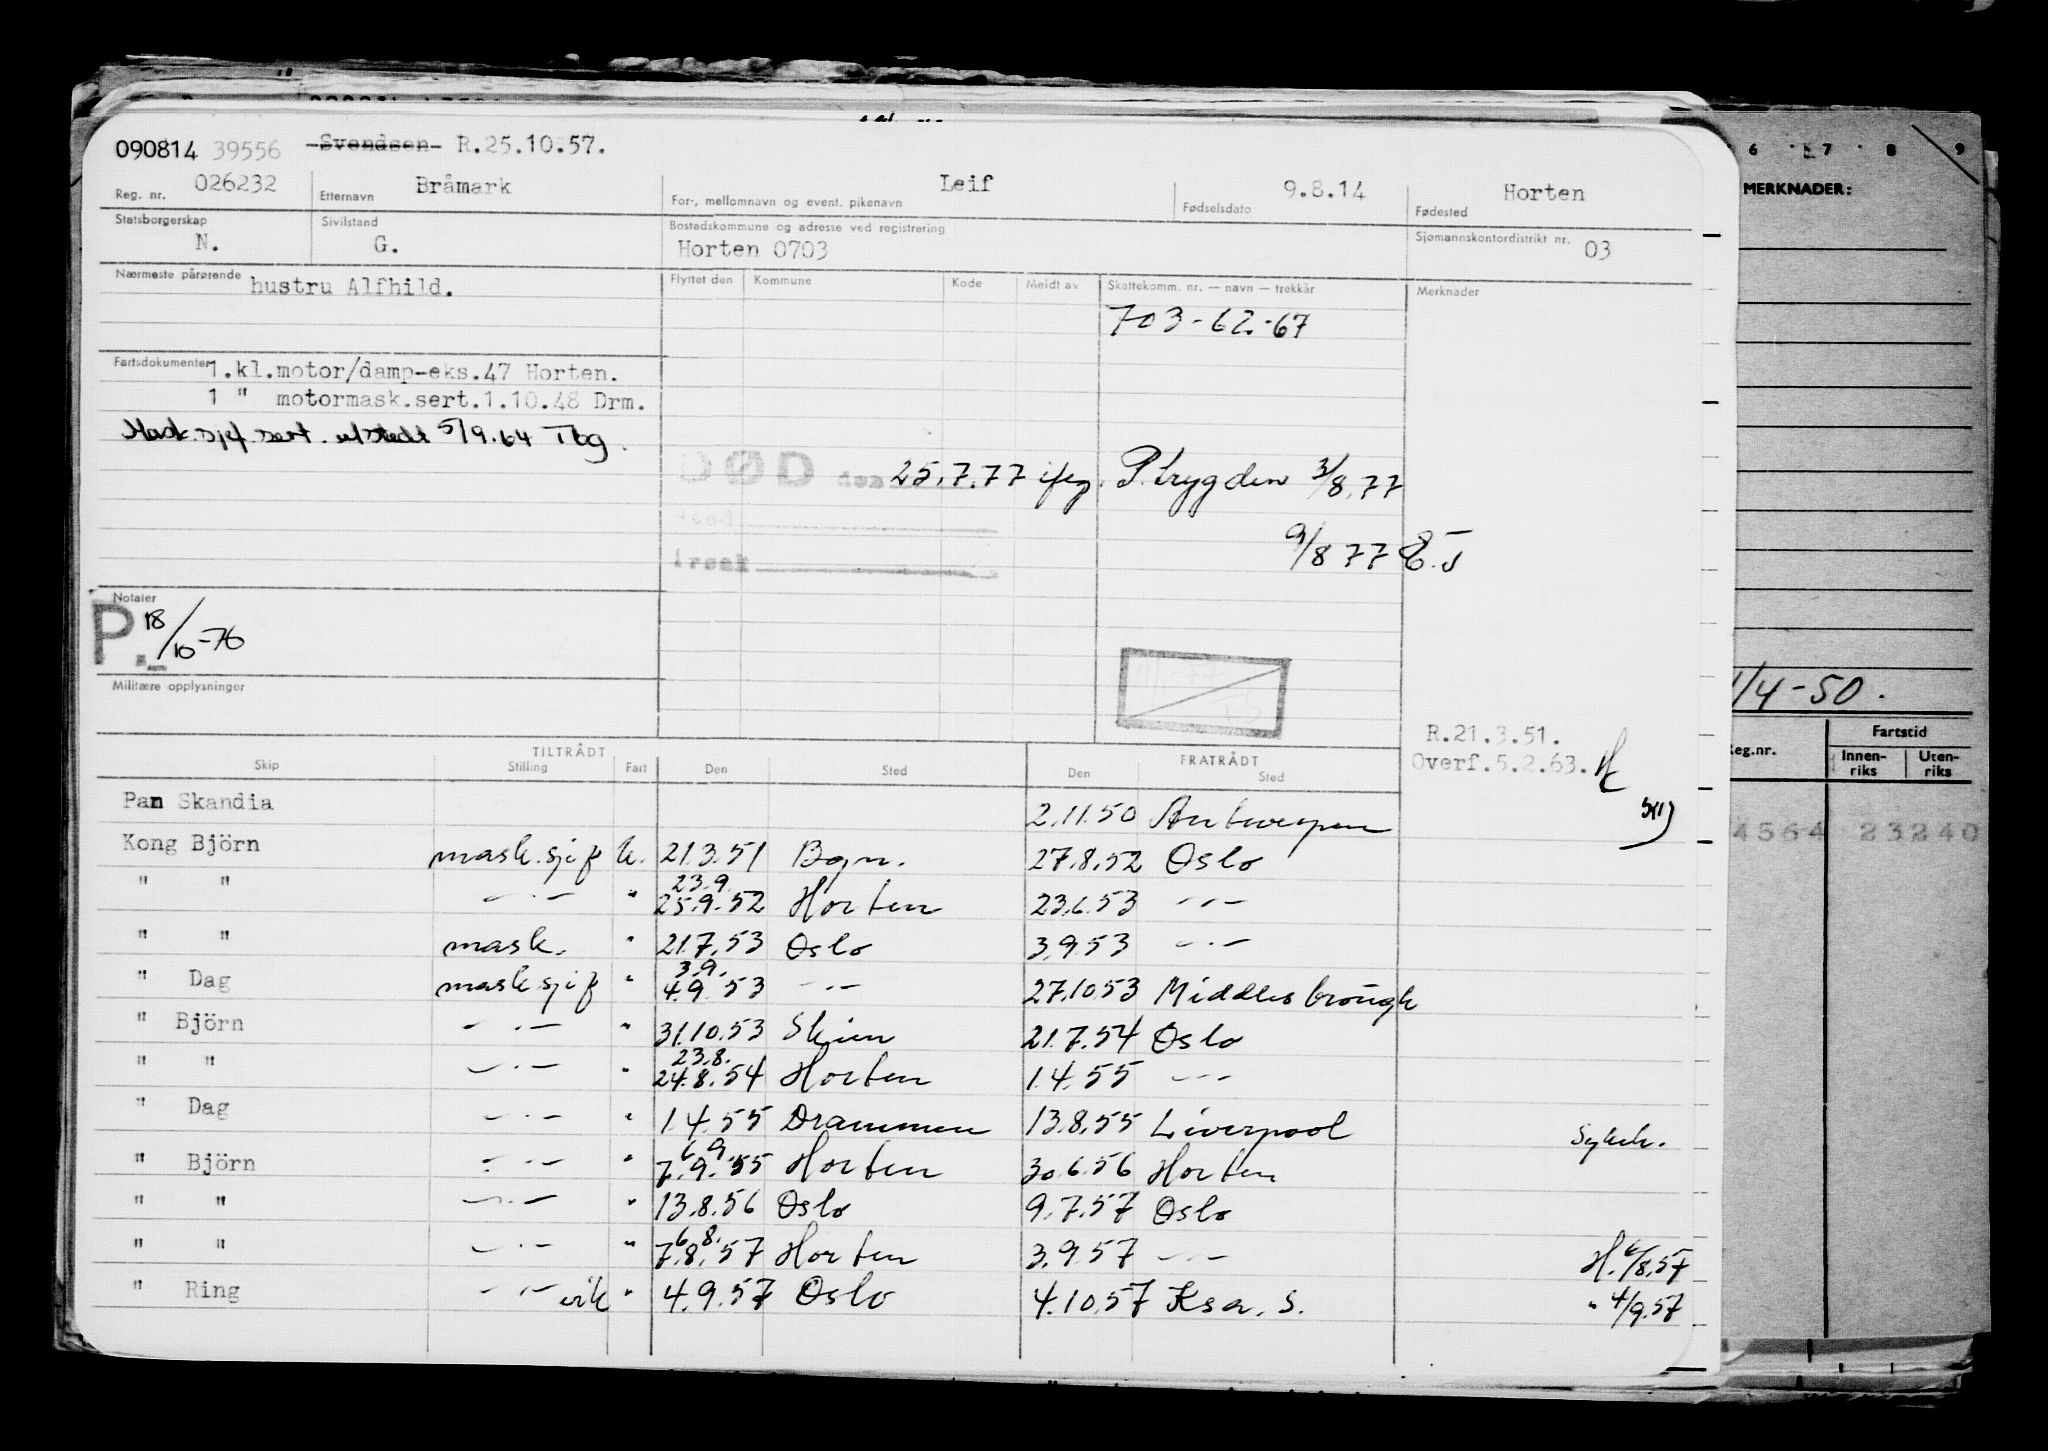 090814 39556 Svendsen R.25.10.57.
026232 Bråmark Leif 9.8.14 Horten
Reg. nr. Etternavn For-, mellomnavn og event. pikenavn Fødselsdato Fødested
Statsborgerskap Sivilstand Bostedskommune og adresse ved registrering Sjømannskontordistrikt nr. 03
N. G. Horten 0703
Nærmeste pårørende hustru Alfhild. Flyttet den Kommune Kode Meldt av Skattekomm. nr. — navn — trekkår Merknader
703-62-67
Fartsdokumenter 1.kl.motor/damp-eks.47 Horten.
1 " motormask.sert.1.10.48 Drm.
Mask.sjef sert. utstedt 5/9.64 Tbg.
DØD den 25.7.77 iføg. P.trygden 3/8.77
Sted
9/8 77 E.J
Årsak
Notater
P. 18/10-76
Militære opplysninger
R.21.3.51.
Overf.5.2.63.
TILTRÅDT FRATRÅDT
Skip Stilling Fart Den Sted Den Sted
Pan Skandia 2.11.50 Antwerpen
Kong Björn mask.sjef u. 21.3.51 Bgn. 27.8.52 Oslo
" " —·— " 23.9. 25.9.52 Horten 23.6.53 —·—
" " mask. " 21.7.53 Oslo 3.9.53 —·—
" Dag mask sjef " 3.9. 4.9.53 —·— 27.10.53 Middlesbrough
" Björn —·— " 31.10.53 Skien 21.7.54 Oslo
" " —·— " 23.8. 24.8.54 Horten 1.4.55 —·—
" Dag —·— " 1.4.55 Drammen 13.8.55 Liverpool Sykeh.
" Björn —·— " 6.9. 7.9.55 Horten 30.6.56 Horten
" " —·— " 13.8.56 Oslo 9.7.57 Oslo
" " —·— " 6.8. 7.8.57 Horten 3.9.57 —·— H.6/8.57
" Ring —·— vik " 4.9.57 Oslo 4.10.57 Ksa. S. " 4/9.57
6 7 8 9
MERKNADER:
1/4-50.
Reg.nr. Fartstid
Innen-riks Uten-riks
4564 23240